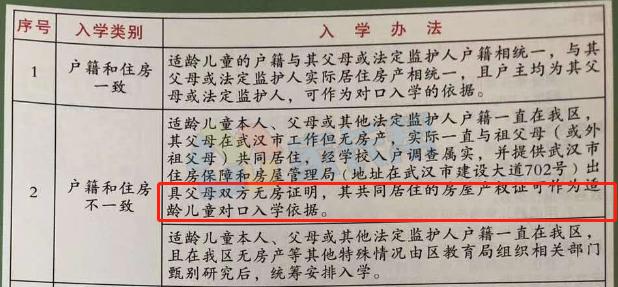 序号 入学类别 入学办法
1 户籍和住房一致
适龄儿童的户籍与其父母或法定监护人户籍相统一，与其
父母或法定监护人实际居住房产相统一，且户主均为其父
母或法定监护人，可作为对口入学的依据。
2 户籍和住房不一致
适龄儿童本人、父母或其他法定监护人户籍一直在我区，
其父母在武汉市工作但无房产，实际一直与祖父母（或外
祖父母）共同居住，经学校入户调查属实，并提供武汉市
住房保障和房屋管理局（地址在武汉市建设大道702号）出
具父母双方无房证明，其共同居住的房屋产权证可作为适
龄儿童对口入学依据。
适龄儿童本人、父母或其他法定监护人户籍一直在我区，
且在我区无房产等其他特殊情况由区教育局组织相关部门
甄别研究后，统筹安排入学。